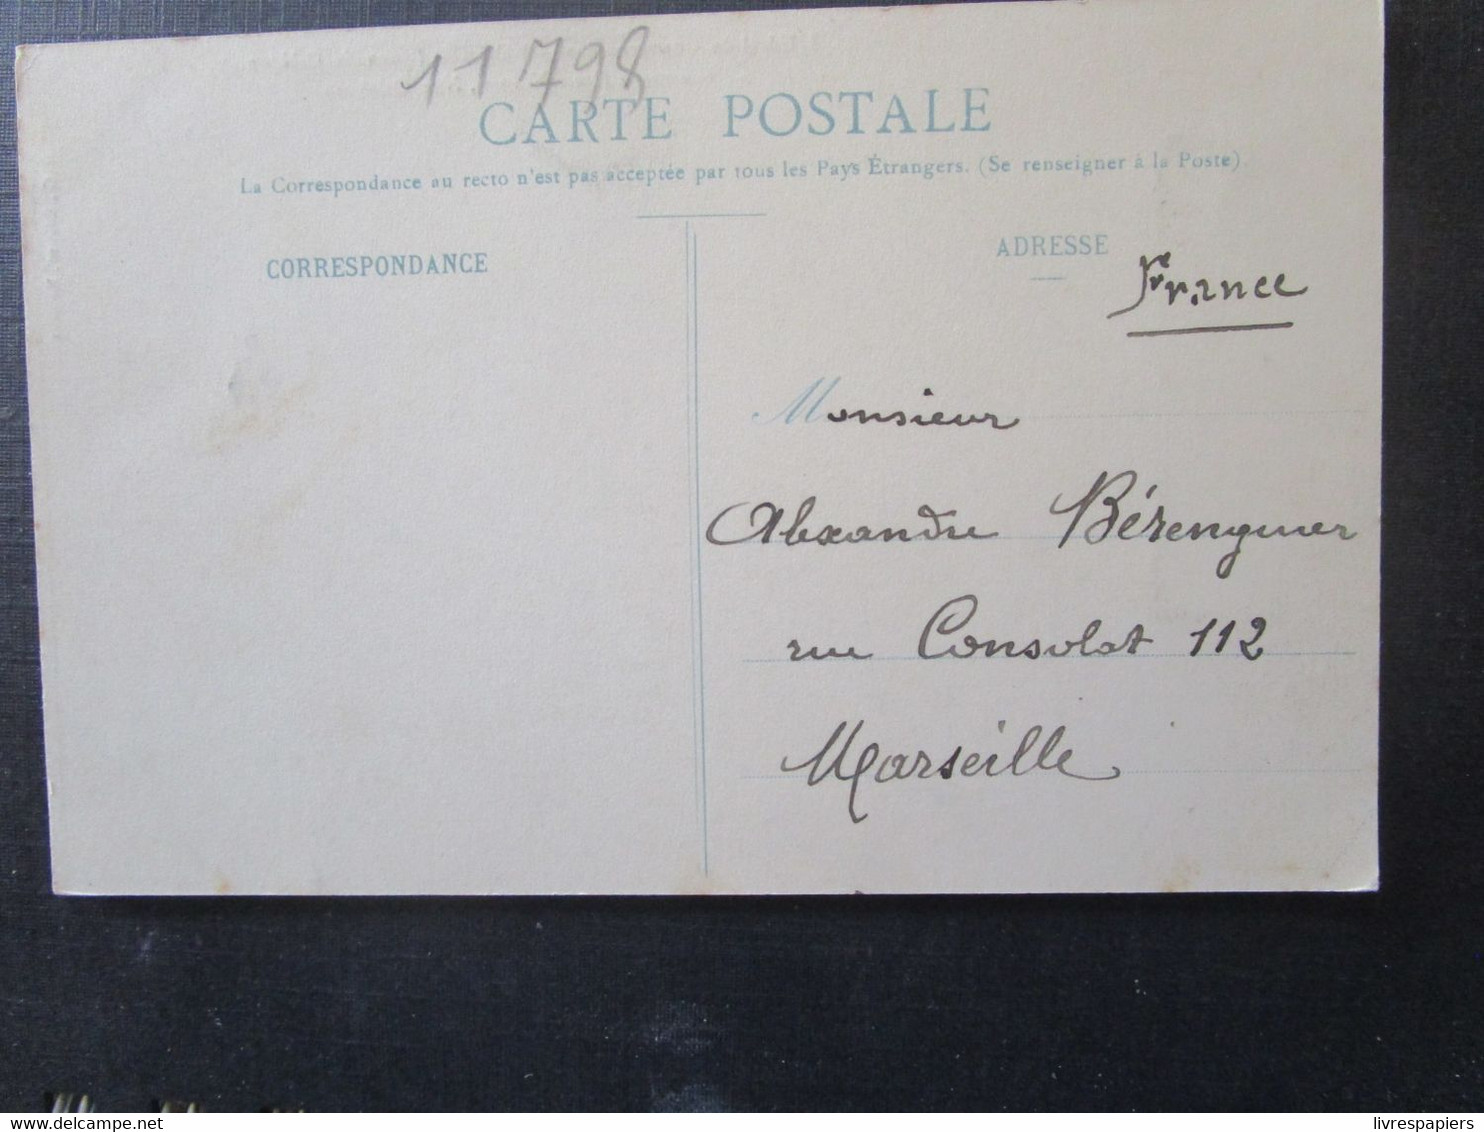 11798
CARTE POSTALE
La Correspondance au recto n'est pas acceptée par tous les Pays Étrangers. (Se renseigner à la Poste).
CORRESPONDANCE
ADRESSE
France
Monsieur
Alexandre Bérenguier
rue Consolat 112
Marseille
livrespapiers